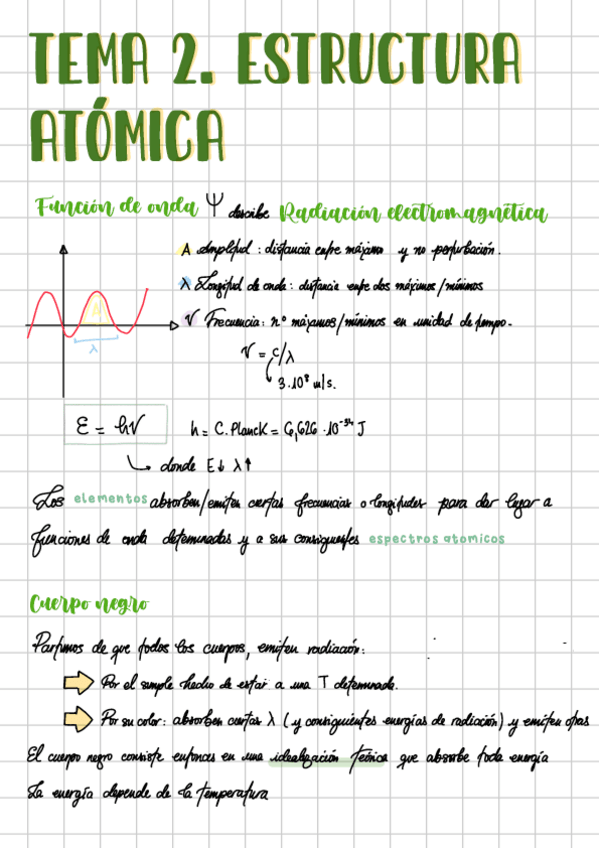 TEMA 2. ESTRUCTURA
ATÓMICA
Función de onda Ψ describe Radiación electromagnética
A Amplitud : distancia entre máximo y no perturbación.
λ Longitud de onda : distancia entre dos máximos/mínimos
ν Frecuencia : nº máximos/mínimos en unidad de tiempo.
A
λ
ν = c/λ
3·10⁸ m/s.
E = hν h = C. Planck = 6,626 · 10⁻³⁴ J
donde E↓ λ↑
Los elementos absorben/emiten ciertas frecuencias o longitudes para dar lugar a
funciones de onda determinadas y a sus consiguientes espectros atomicos
Cuerpo negro
Partimos de que todos los cuerpos, emiten radiación:
Por el simple hecho de estar a una T determinada.
Por su color: absorben ciertas λ (y consiguientes energías de radiación) y emiten otras
El cuerpo negro consiste entonces en una idealización teórica que absorbe toda energía
La energía depende de la temperatura